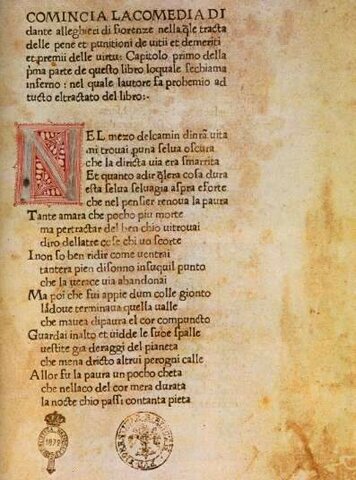 COMINCIA LA COMEDIA DI
dante alleghieri di fiorenze nella q̃le tracta
delle pene et punitioni de uitii et demeriti
et premii delle uirtu: Capitolo primo della
p̃ma parte de questo libro loquale sechiama
inferno: nel quale lautore fa prohemio ad
tucto eltractato del libro:-
NEL mezo delcamin dinr̃a uita
mi trouai puna selua oscura
che la diricta uia era smarrita
Et quanto adir q̃lera cosa dura
esta selua seluagia aspra eforte
che nel pensier renoua la paura
Tante amara che pocho piu morte
ma pertractar del ben chio uitrouai
diro dellatre cose chi uo scorte
I non so ben ridir come uentrai
tantera pien disonno insuquil punto
che la uerace uia abandonai
Ma poi che fui appie dum colle gionto
ladoue terminaua quella ualle
che mauea dipaura el cor compuncto
Guardai inalto et uidde le sue spalle
uestite gia deraggi del pianeta
che mena dricto altrui perogni calle
Allor fu la paura un pocho cheta
che nellaco del cor mera durata
la nocte chio passi contanta pieta